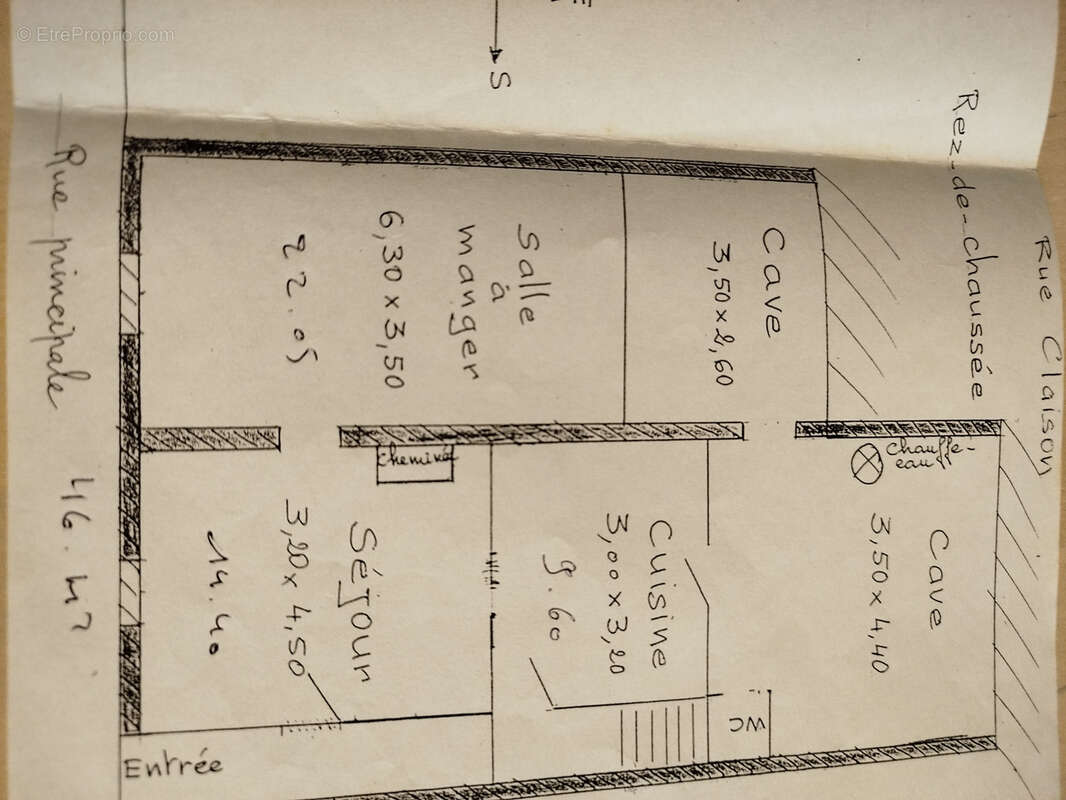 © EtreProprio.com
S
Rue Claison
Rez-de-chaussée
Cave
3,50 x 2,60
Salle
à
manger
6,30 x 3,50
22.05
Chauffe-
eau
Cave
3,50 x 4,40
Cheminée
Cuisine
3,00 x 3,20
9.60
Séjour
3,20 x 4,50
14.40
WC
Entrée
Rue principale